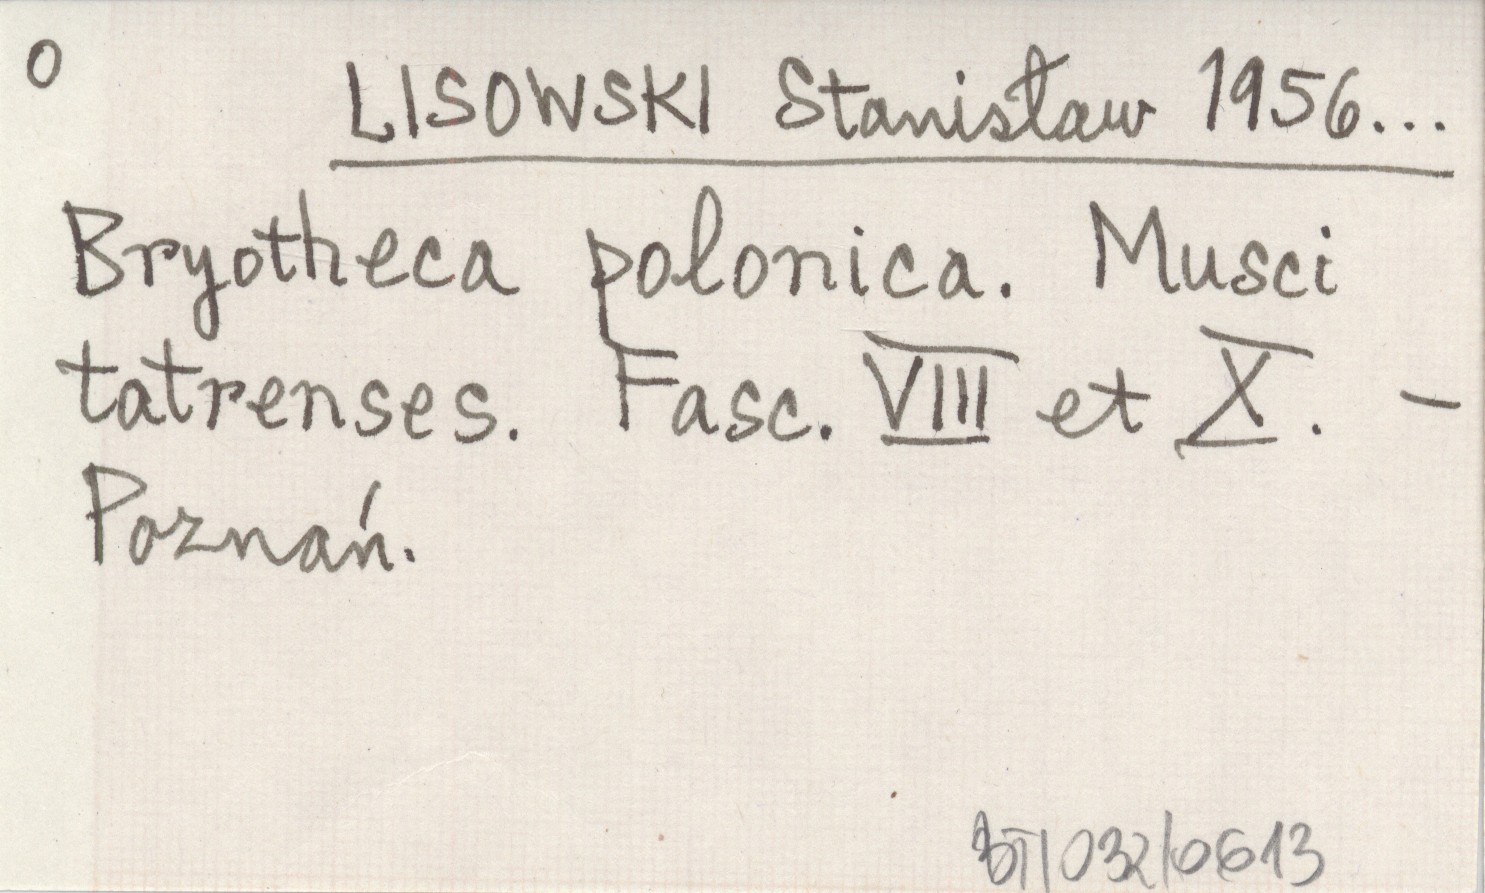 O
LISOWSKI Stanisław 1956...
Bryotheca polonica. Musci
tatrenses. Fasc. VIII et X. -
Poznań.
BT/032/0613